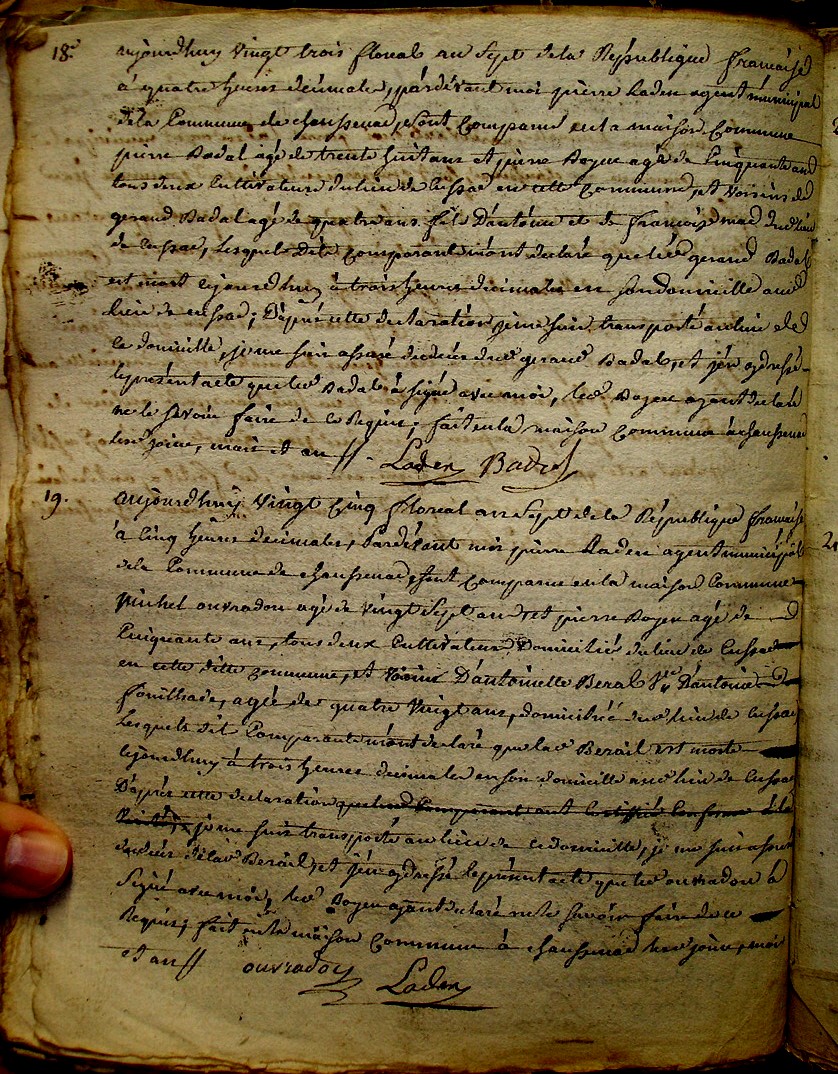 18e aujourdhuy vingt trois floreal an sept de la Republique francaise
à quatre heures décimales, pardévant moi pierre Laden agent municipal
de la Commune de chaussenac, sont comparus en la maison Commune
pierre Badal agé de trente huit ans et pierre Boyer agé de Cinquante ans
tous deux Cultivateurs du lieu de Cussac en cette Commune, et voisins de
gerand Badal agé de quatre ans fils D'antoine et de françoise du lieu
de Cussac, Lesquels dits comparants m'ont declaré que led gerand Badal
est mort cejourdhuy à trois heures decimales en son domicille aud
lieu de cussac; D'apres cette declaration je me suis transporté au lieu de
ce domicille, je me suis assuré du deces dud gerand Badal, et j'en ay dressé
le présent acte que led Badal à signé avec moi, led Boyer ayant declaré
ne le savoir faire de ce Requis; fait en la maison commune à chaussenac
les jour, mois et an // Laden Badal
19. aujourdhuy vingt Cinq floreal an sept de la République francaise
à Cinq heures decimales, Pardévant moi pierre Laden agent municipal
de la Commune de chaussenac, sont comparus en la maison Commune
Michel ouvradou agé de vingt sept ans et pierre Boyer agé de
Cinquante ans, tous deux Cultivateurs, Domiciliés du lieu de Cussac
en cette ditte commune, et voisins D'antoinette Beral Ve D'antoine
Fouilhade, agée de quatre vingt ans, domiciliée dud lieu de Cussac
Lesquels dit Comparants m'ont declaré que lad Berail est morte
cejourdhuy à trois heures decimales en son domicille aud lieu de Cussac
D'après cette declaration que lesd Comparant ont certiffié Conforme à la
Verité, je me suis transporté au lieu de ce domicille, je me suis assuré
du deces de lad Berail, et j'en ay dressé le présent acte que led ouvradou à
signé avec moi, led Boyer ayant declaré ne le savoir faire de ce
Requis; fait en la maison commune à chaussenac les jour, mois
et an // ouvradou Laden